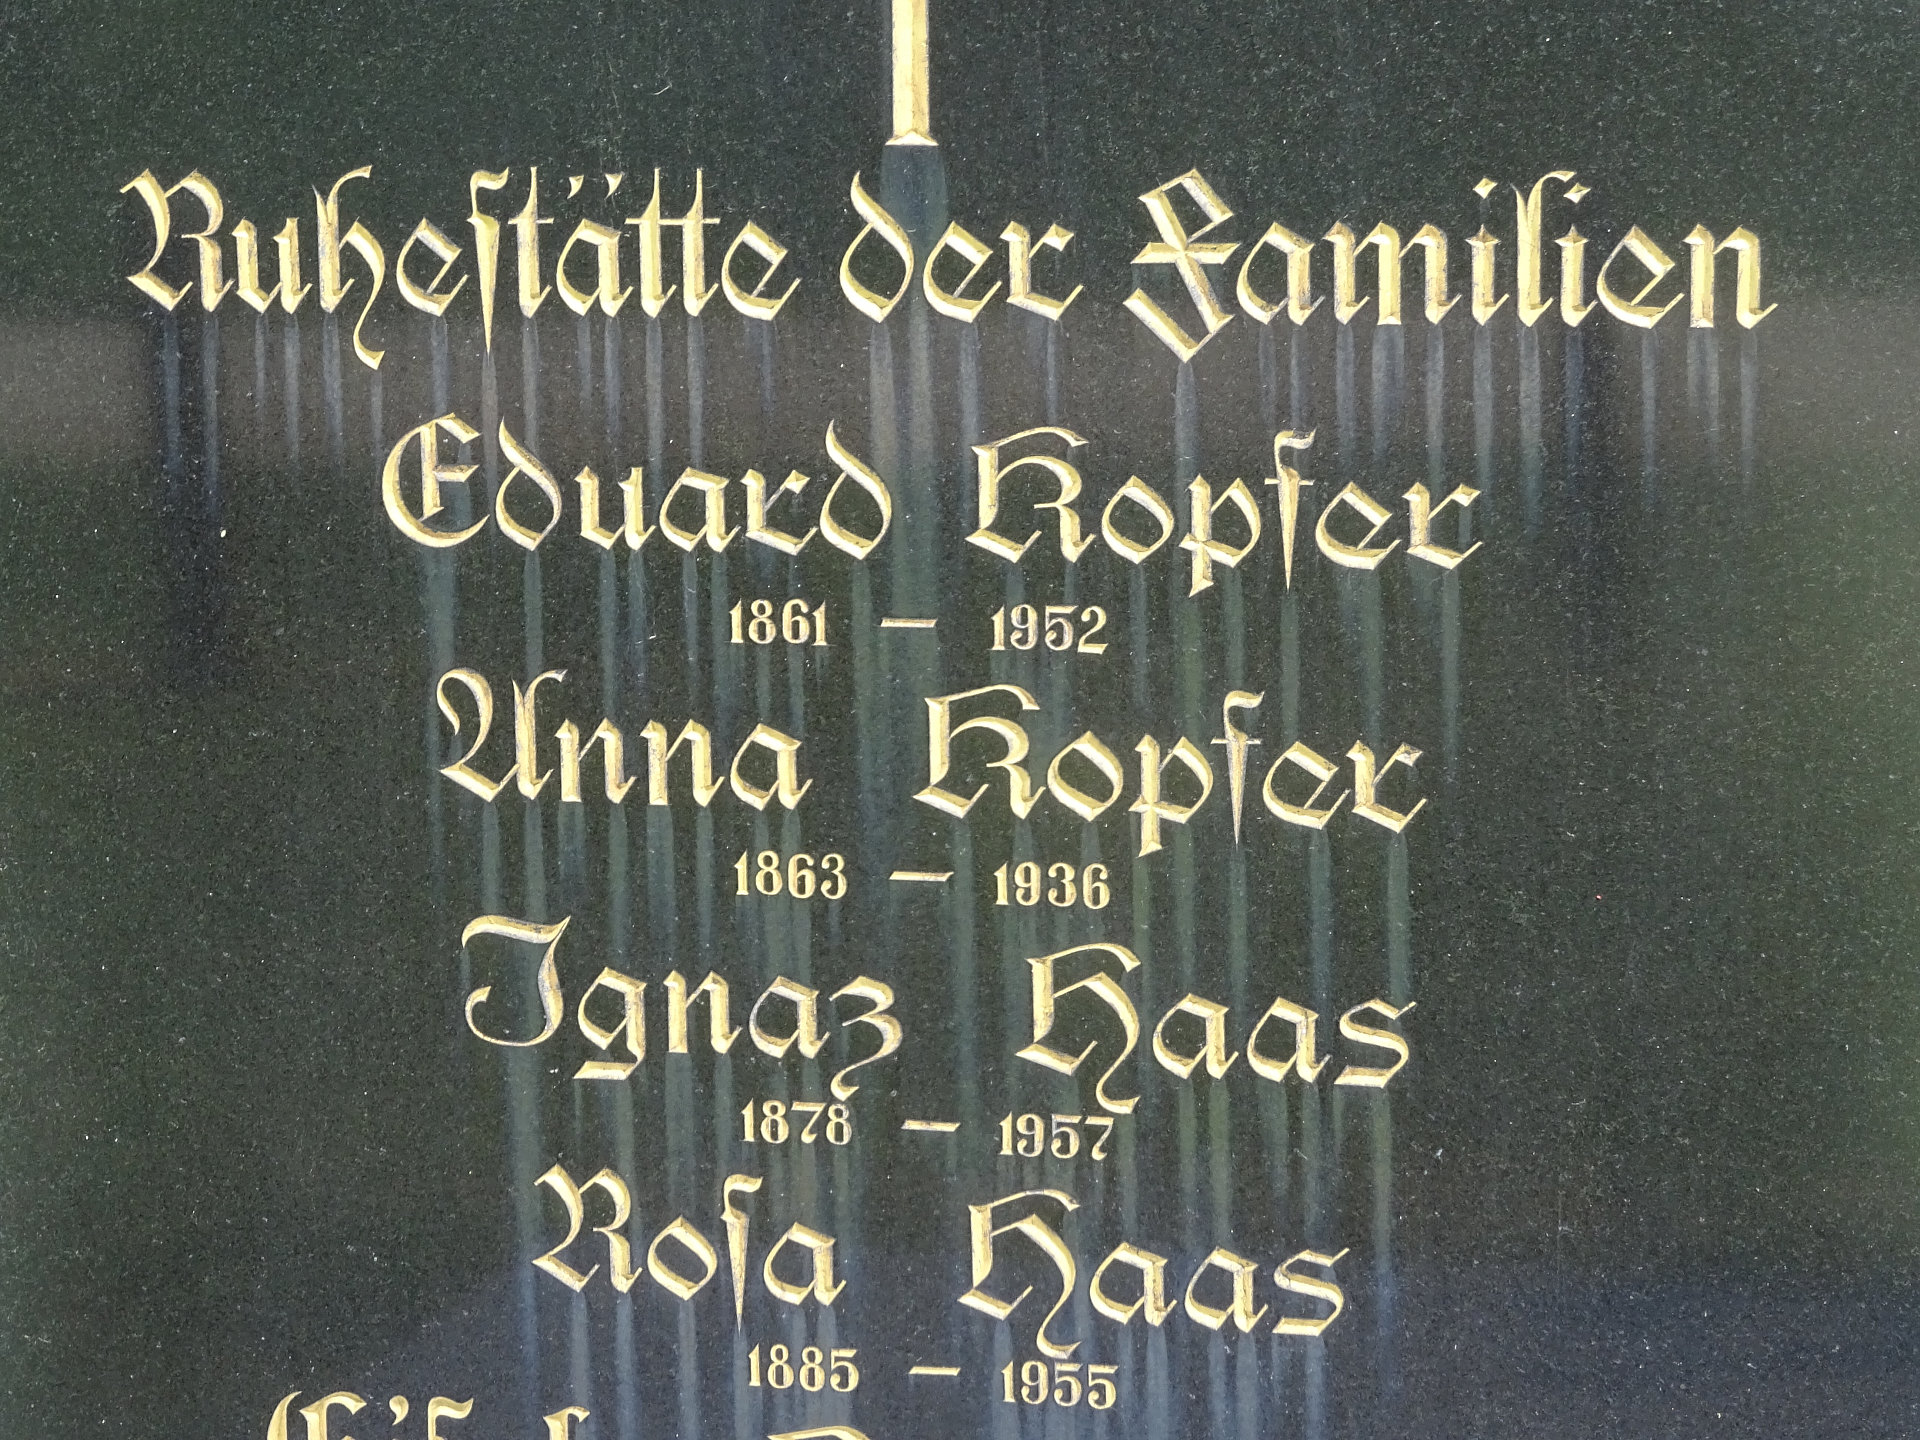 Ruheſtätte der Familien
Eduard Kopfer
1861 — 1952
Anna Kopfer
1863 — 1936
Ignaz Haas
1878 — 1957
Roſa Haas
1885 — 1955